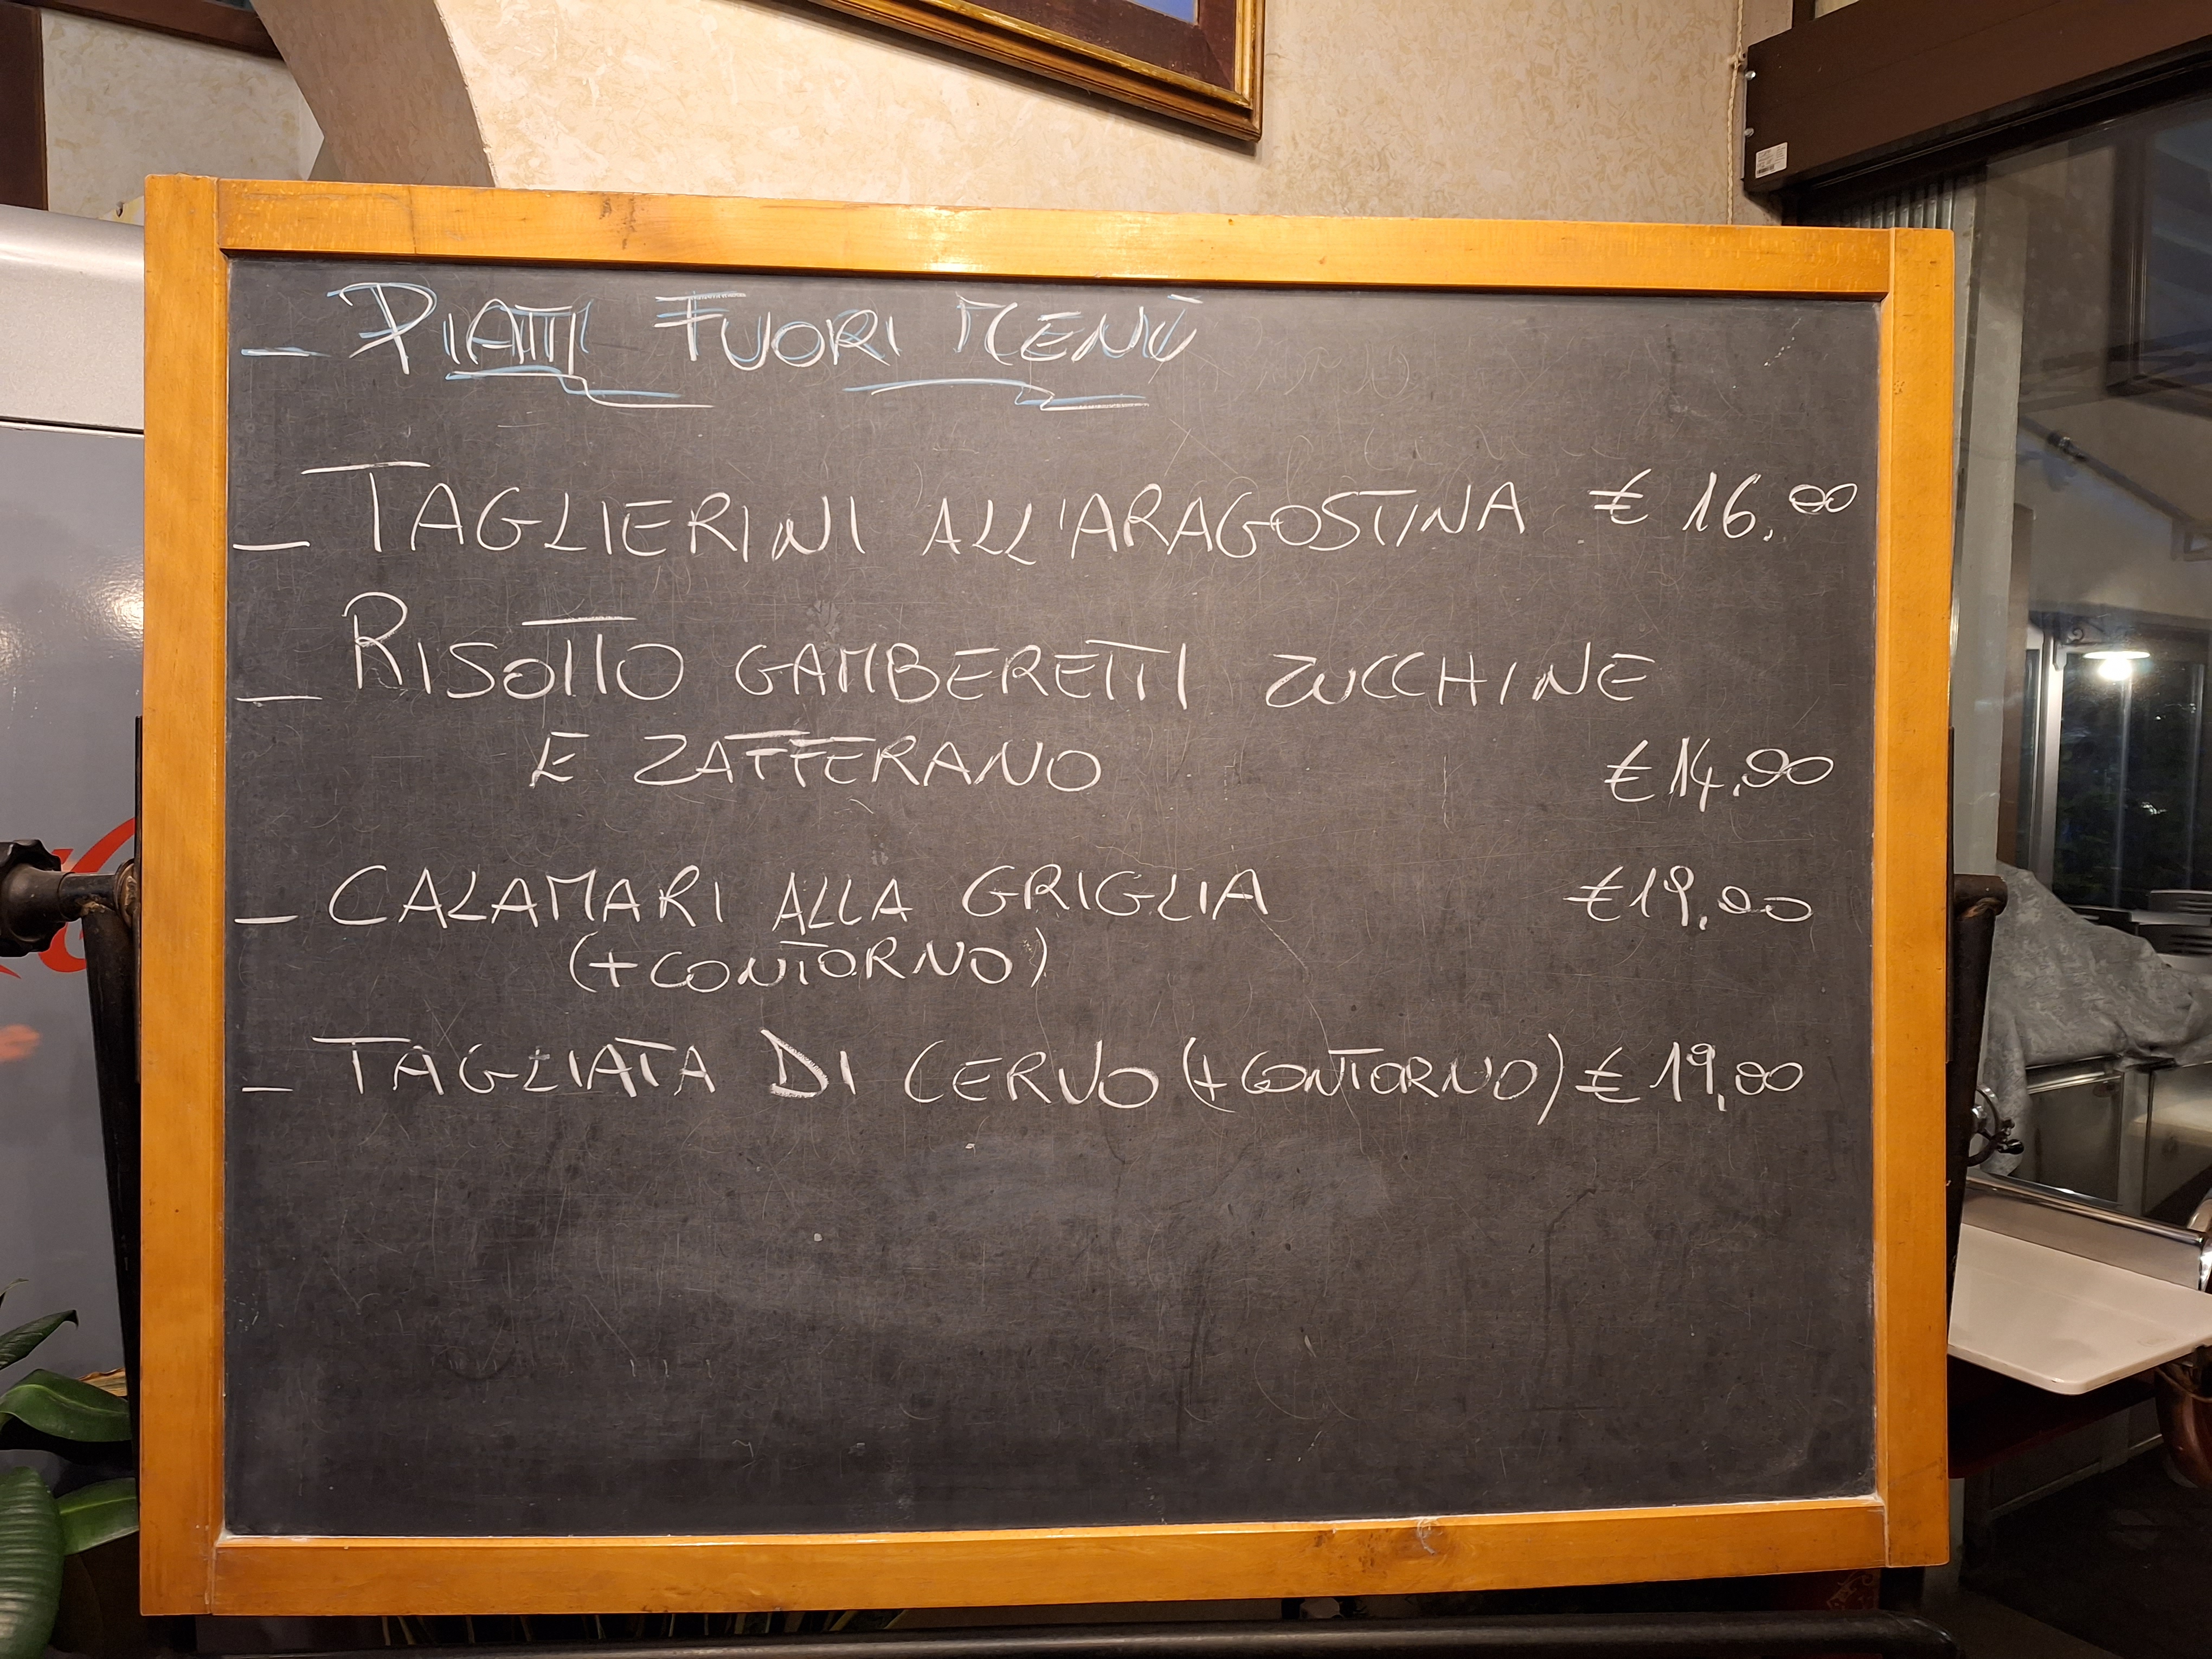 - PIATTI FUORI MENÙ
- TAGLIERINI ALL'ARAGOSTINA € 16,00
- RISOTTO GAMBERETTI ZUCCHINE
E ZAFFERANO € 14,00
- CALAMARI ALLA GRIGLIA € 19,00
(+CONTORNO)
- TAGLIATA DI CERVO (+CONTORNO) € 19,00